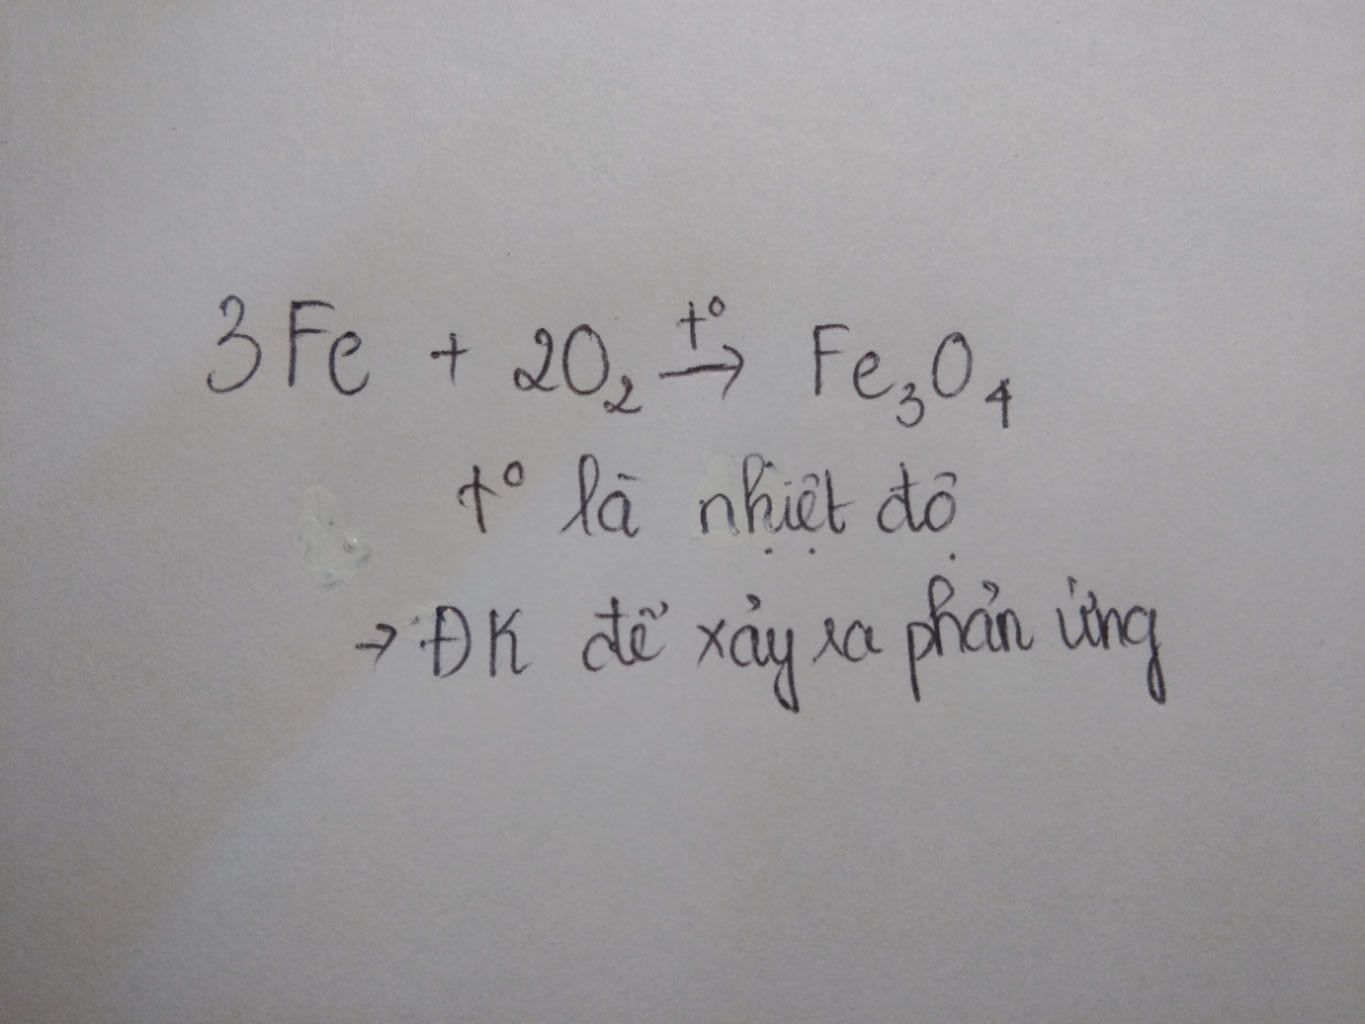 3Fe + 2O₂ →^{t°} Fe₃O₄
t° là nhiệt độ
→ ĐK để xảy ra phản ứng